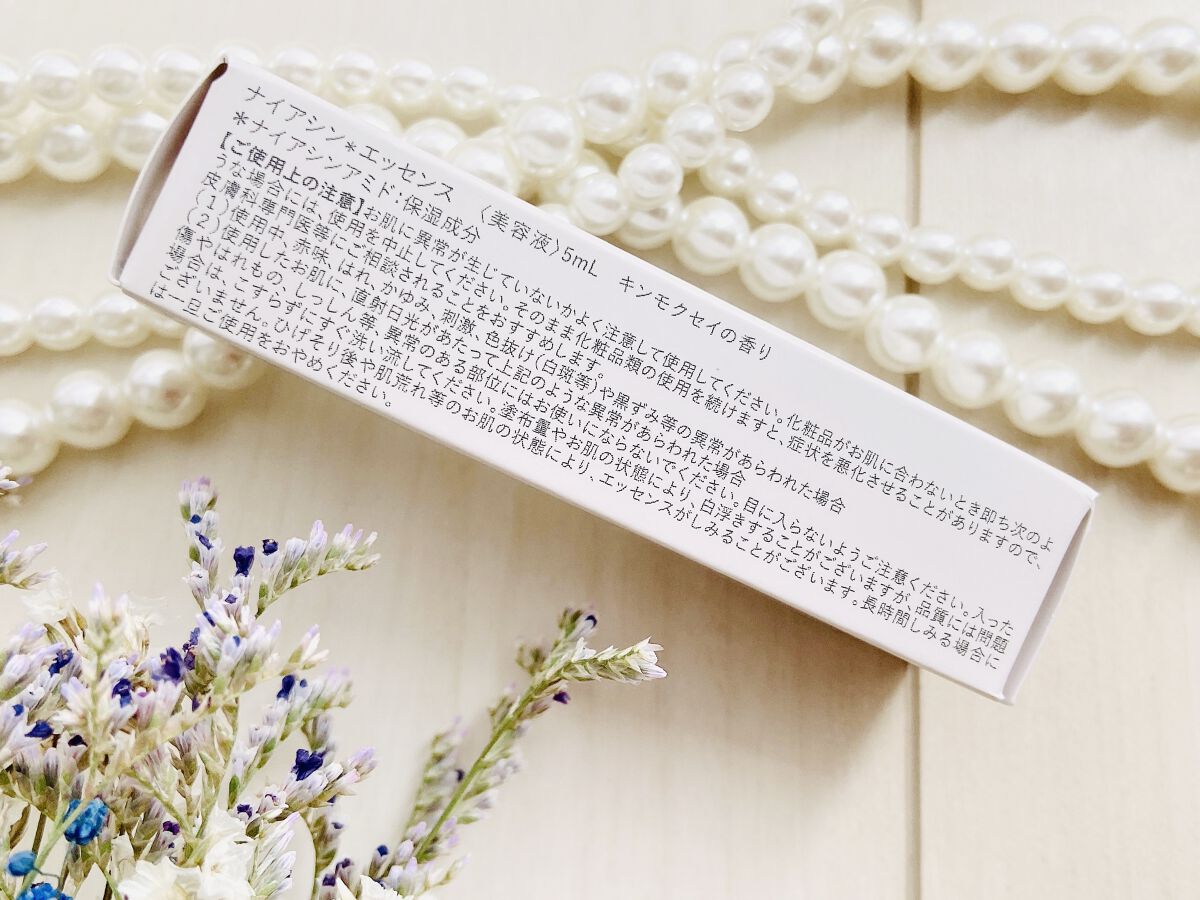 ナイアシン*エッセンス 〈美容液〉5mL キンモクセイの香り
*ナイアシンアミド:保湿成分
【ご使用上の注意】お肌に異常が生じていないかよく注意して使用してください。化粧品がお肌に合わないとき即ち次のよ
うな場合には、使用を中止してください。そのまま化粧品類の使用を続けますと、症状を悪化させることがありますので、
皮膚科専門医等にご相談されることをおすすめします。
(1)使用中、赤味、はれ、かゆみ、刺激、色抜け(白斑等)や黒ずみ等の異常があらわれた場合
(2)使用したお肌に、直射日光があたって上記のような異常があらわれた場合
傷やはれもの、しっしん等、異常のある部位にはお使いにならないでください。目に入らないようご注意ください。入った
場合は、こすらずにすぐ洗い流してください。塗布量やお肌の状態により、白浮きすることがございますが、品質には問題
ございません。ひげそり後や肌荒れ等のお肌の状態により、エッセンスがしみることがございます。長時間しみる場合に
は一旦ご使用をおやめください。